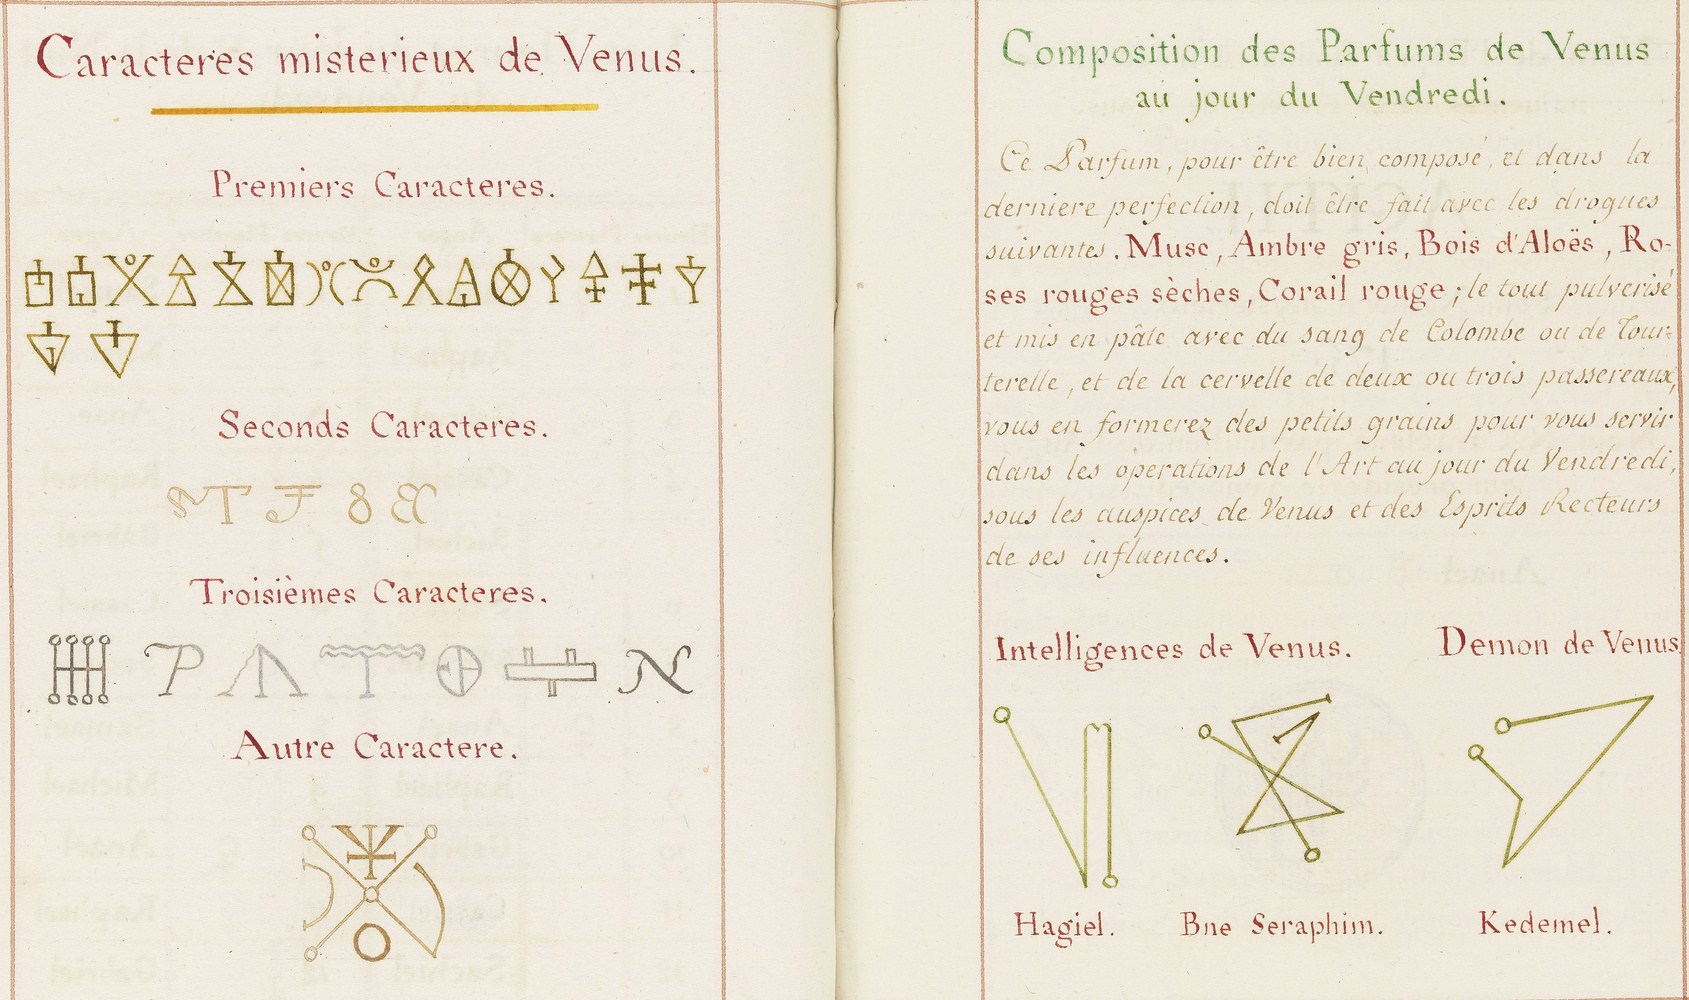 Caracteres misterieux de Venus.
Premiers Caracteres.
Seconds Caracteres.
Troisièmes Caracteres.
Autre Caractere.
Composition des Parfums de Venus
au jour du Vendredi.
Ce Parfum, pour être bien composé, et dans la
derniere perfection, doit être fait avec les drogues
suivantes. Musc, Ambre gris, Bois d'Aloës, Ro-
ses rouges sèches, Corail rouge; le tout pulverisé
et mis en pâte avec du sang de Colombe ou de Tour-
terelle, et de la cervelle de deux ou trois passereaux,
vous en formerez des petits grains pour vous servir
dans les operations de l'Art au jour du Vendredi,
sous les auspices de Venus et des Esprits Recteurs
de ses influences.
Intelligences de Venus. Demon de Venus
Hagiel. Bne Seraphim. Kedemel.